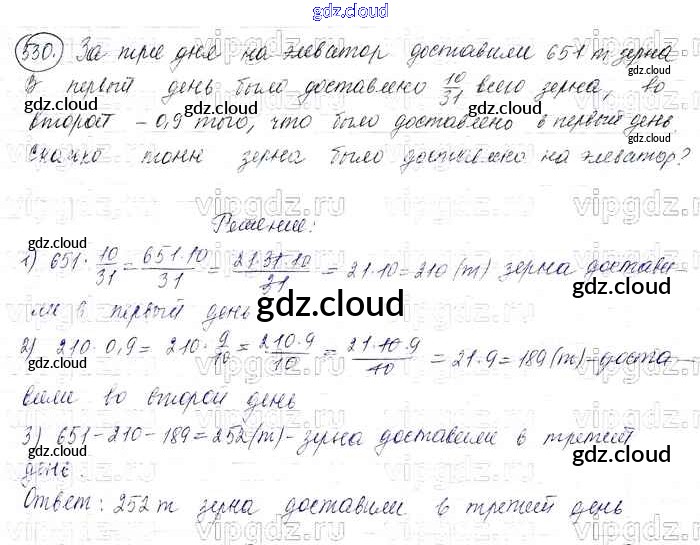 gdz.cloud
530. За три дня на элеватор доставили 651 т зерна
В первый день было доставлено 10/31 всего зерна, во
gdz.cloud
второй - 0,9 того, что было доставлено в первый день
Сколько тонн зерна было доставлено на элеватор?
Решение:
gdz.cloud
1) 651 · 10/31 = 651·10/31 = 21·31·10/31 = 21·10 = 210 (т) зерна достави-
ли в первый день
gdz.cloud
2) 210 · 0,9 = 210 · 9/10 = 210·9/10 = 21·10·9/10 = 21·9 = 189 (т) - доста-
вили во второй день
3) 651 - 210 - 189 = 252 (т) - зерна доставили в третий
день.
Ответ: 252 т зерна доставили в третий день
gdz.cloud